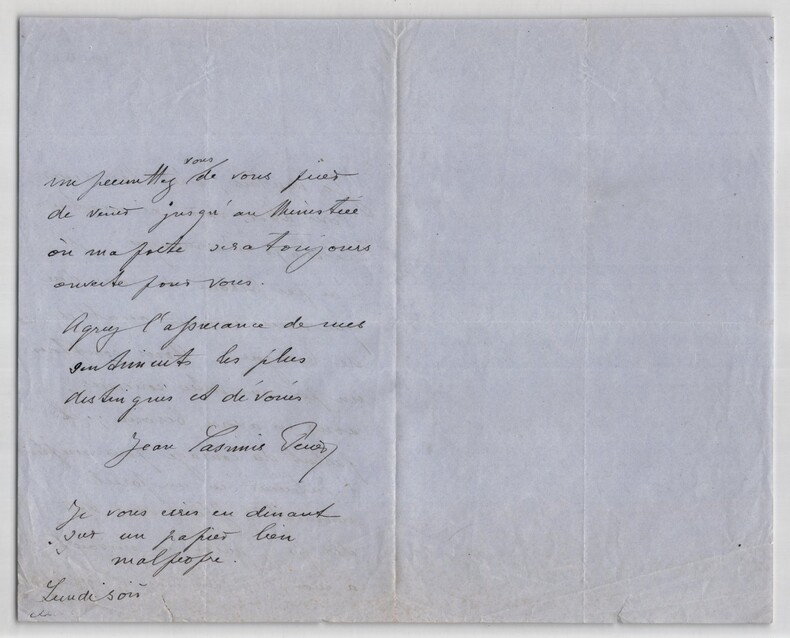 me permettez vous de vous prier
de venir jusqu'au Ministère
où ma porte sera toujours
ouverte pour vous.
Agréez l'assurance de mes
sentiments les plus
distingués et dévoués
Jean Casimir Perier
Je vous écris en dinant
sur un papier bien
malpropre.
Lundi soir